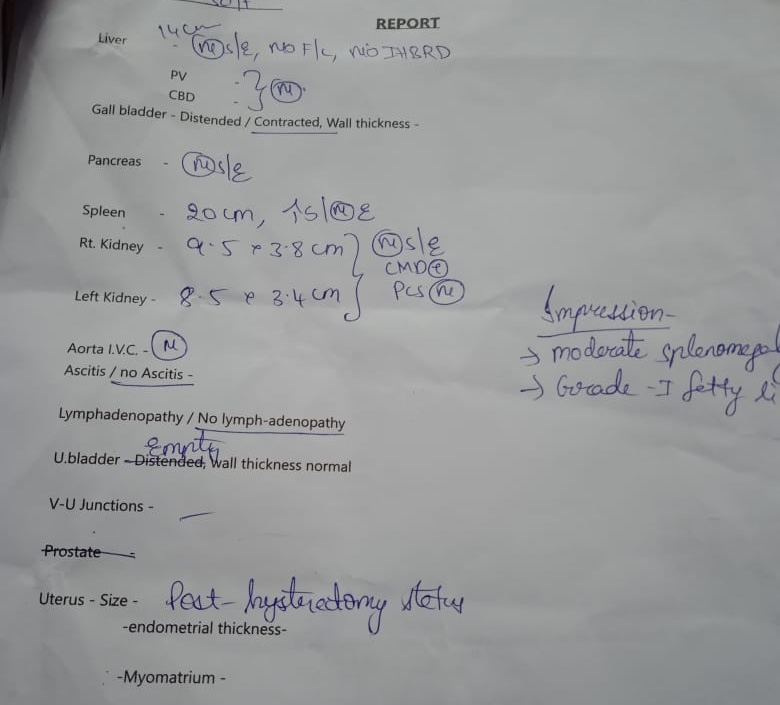 REPORT
Liver - 14 cm (N) s/e, no F/L, no IHBRD
PV -
CBD - } (N).
Gall bladder - Distended / Contracted, Wall thickness -
Pancreas - (N) s/e
Spleen - 20 cm, ↑s/(N)E
Rt. Kidney - 9.5 x 3.8 cm } (N) s/e
CMD(+)
Left Kidney - 8.5 x 3.4 cm } PCS (N)
Impression-
Aorta I.V.C. - (N)
→ moderate splenomegal
Ascitis / no Ascitis -
→ Grade - I fatty li
Lymphadenopathy / No lymph-adenopathy
Empty
U.bladder - Distended, Wall thickness normal
V-U Junctions - —
Prostate -
Uterus - Size - Post-hysterectomy status
-endometrial thickness-
-Myomatrium -